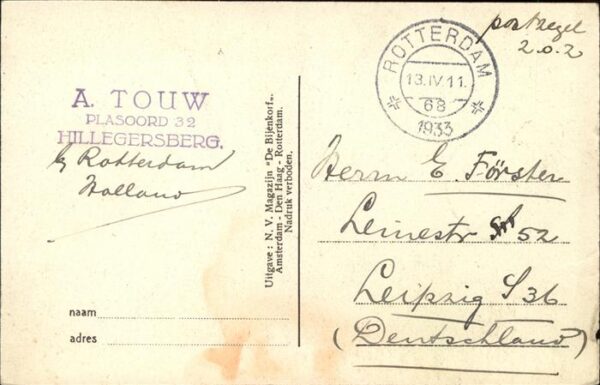 postzegel
z.o.z
ROTTERDAM
13.IV.11.
68
1933
A. TOUW
PLASOORD 32
HILLEGERSBERG.
b/ Rotterdam
Holland
Uitgave: N. V. Magazijn "De Bijenkorf".
Amsterdam - Den Haag - Rotterdam.
Nadruk verboden.
Herrn E. Förster
Leinestr 52
Leipzig S36
(Deutschland)
naam
adres